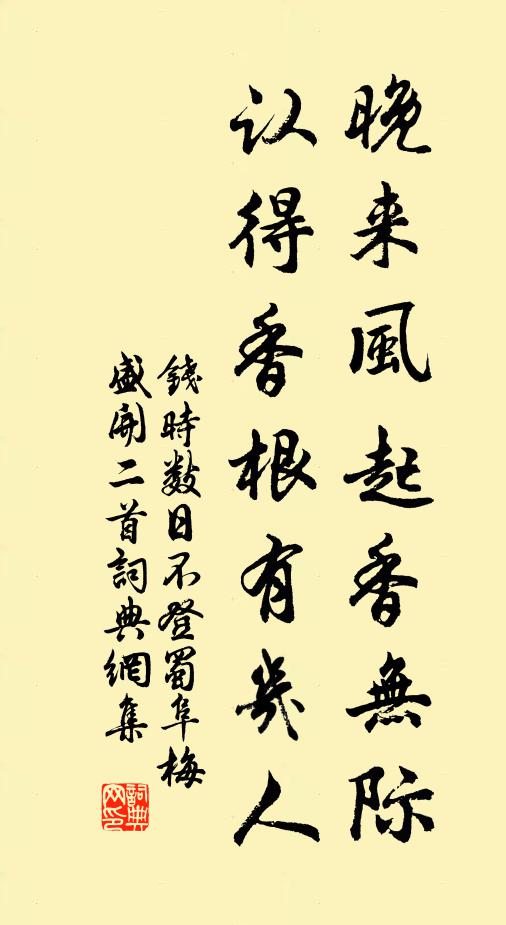 晚来風起香無际
认得香根有幾人
錢時数日不登蜀阜梅
盛開二首詞典網集
詞典网印